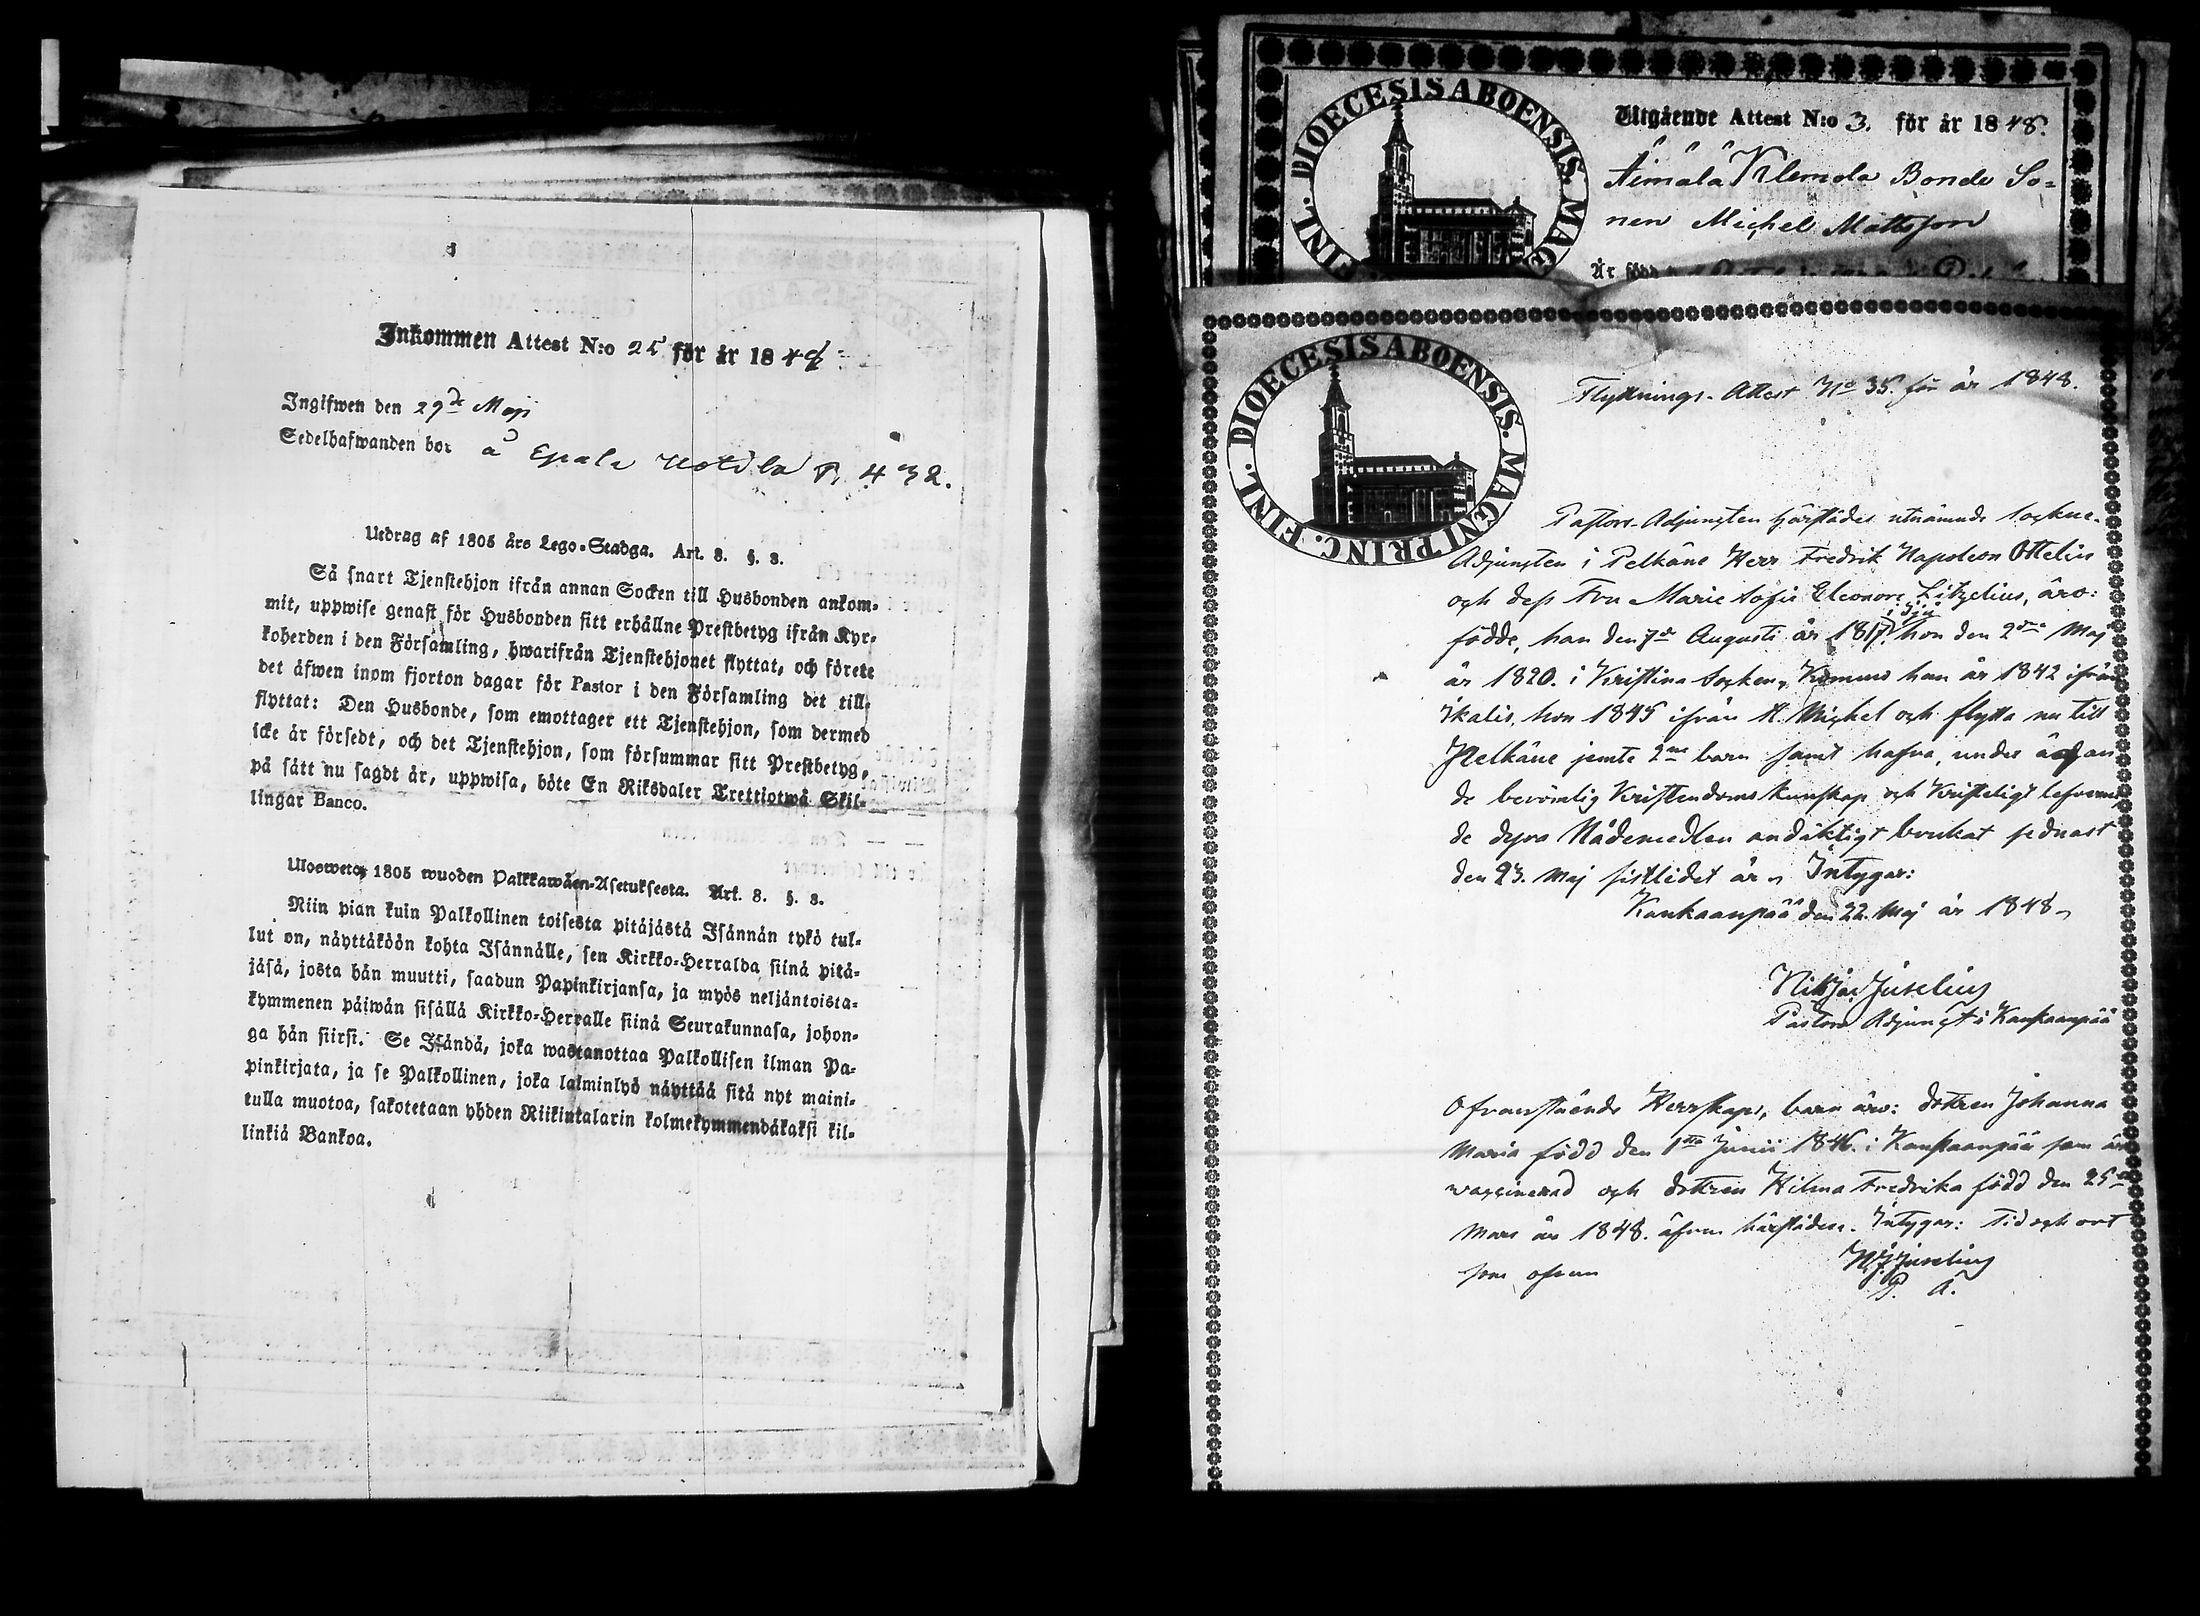 Inkommen Attest N:o 25 för år 1848
Ingifwen den 29de Maji
Sedelhafwanden bor å Epala Uotila P. 432.
Utdrag af 1805 års Lego-Stadga. Art. 8. §. 3.
Så snart Tjenstehjon ifrån annan Socken till Husbonden ankom-
mit, uppwise genast för Husbonden sitt erhållne Prestbetyg ifrån Kyr-
koherden i den Församling, hwarifrån Tjenstehjonet flyttat, och förete
det äfwen inom fjorton dagar för Pastor i den Församling det till-
flyttat: Den Husbonde, som emottager ett Tjenstehjon, som dermed
icke är försedt, och det Tjenstehjon, som försummar sitt Prestbetyg,
på sätt nu sagdt är, uppwisa, böte En Riksdaler Trettiotwå Skil-
lingar Banco.
Uloswetos 1805 wuoden Palkkawäen-Asetuksesta. Art. 8. §. 3.
Niin pian kuin Palkollinen toisesta pitäjästä Isännän tykö tul-
lut on, näyttäköön kohta Isännälle, sen Kirkko-Herralda siinä pitä-
jäsä, josta hän muutti, saadun Papinkirjansa, ja myös neljäntoista-
kymmenen päiwän sisällä Kirkko-Herralle siinä Seurakunnasa, johon-
ga hän siirsi. Se Isändä, joka wastanottaa Palkollisen ilman Pa-
pinkirjata, ja se Palkollinen, joka laiminlyö näyttää sitä nyt maini-
tulla muotoa, sakotetaan yhden Riikintalarin kolmekymmendäkaksi kil-
linkiä Bankoa.
DIOECESIS ABOENSIS. MAG
FINL.
Utgående Attest N:o 3. för år 1848.
Äimälä Klemola Bonde So-
nen Michel Mattsson
År född
DIOECESIS ABOENSIS. MAGNI PRINC. FINL.
Flyttnings-Attest No 35 för år 1848.
Pastors-Adjungten härstädes utnämnde Sockne-
Adjungten i Pelkäne Herr Fredrik Napoleon Ottelin
och dess Fru Marie Sofie Eleonore Litzelius, äro:
födde, han den 7de Augusti år 1817, hon den 2dra Maj
år 1820. i Kristina Socken, Kommo han år 1842 ifrån
Ikalis, hon 1845 ifrån St. Michel och flytta nu till
Pelkäne jemte 2ne barn samt hafva, under ådagan
de berömlig Kristendoms kunskap och Kristeligt lefverne
de dyra Nådemedlen andäktigt brukat sednast
den 23. Maj sistlidet år, Intygar:
Kankaanpää den 22. Maj år 1848,
Juselius
Pastors Adjungt i Kankaanpää
Ofvanstående Herrskaps, barn äro: dottren Johanna
Maria född den 1sta Junii 1846. i Kankaanpää som är
waccinerad och dottren Hilma Fredrika född den 25te
Mars år 1848. äfven härstädes. Intygar: Tid och ort
som ofvan
N. J. Juselius
P. A.